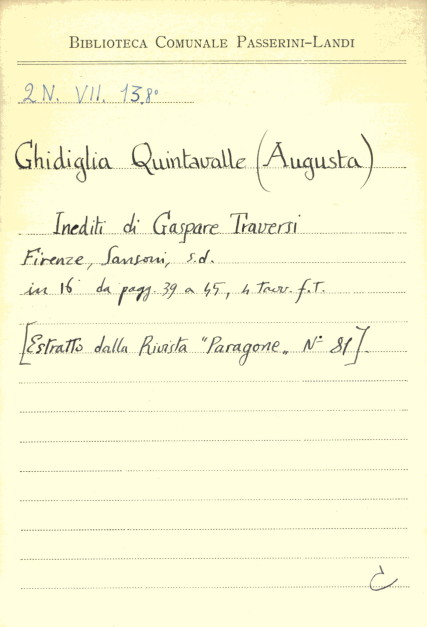 BIBLIOTECA COMUNALE PASSERINI-LANDI
2N. VII. 13,8°
Ghidiglia Quintavalle (Augusta)
Inediti di Gaspare Traversi
Firenze, Sansoni, s.d.
in 16° da pagg. 39 a 45, 4 tavv. f.t.
[Estratto dalla Rivista "Paragone„ N° 81].